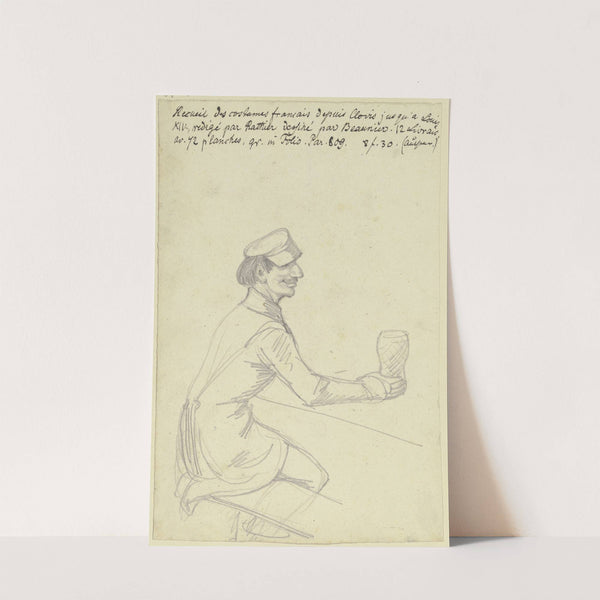 Recueil des costumes francais depuis Clovis jusqu'a Louis
XIV, redigé par Rathier dessiné par Beaunier. 12 Livrais.
av. 72 planches. gr. in Folio. Par. 809. 8f. 30.